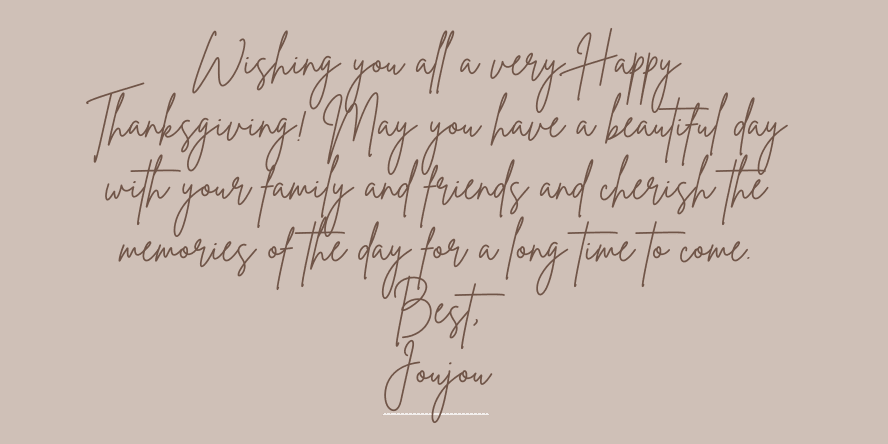 Wishing you all a very Happy
Thanksgiving! May you have a beautiful day
with your family and friends and cherish the
memories of the day for a long time to come.
Best,
Joujou